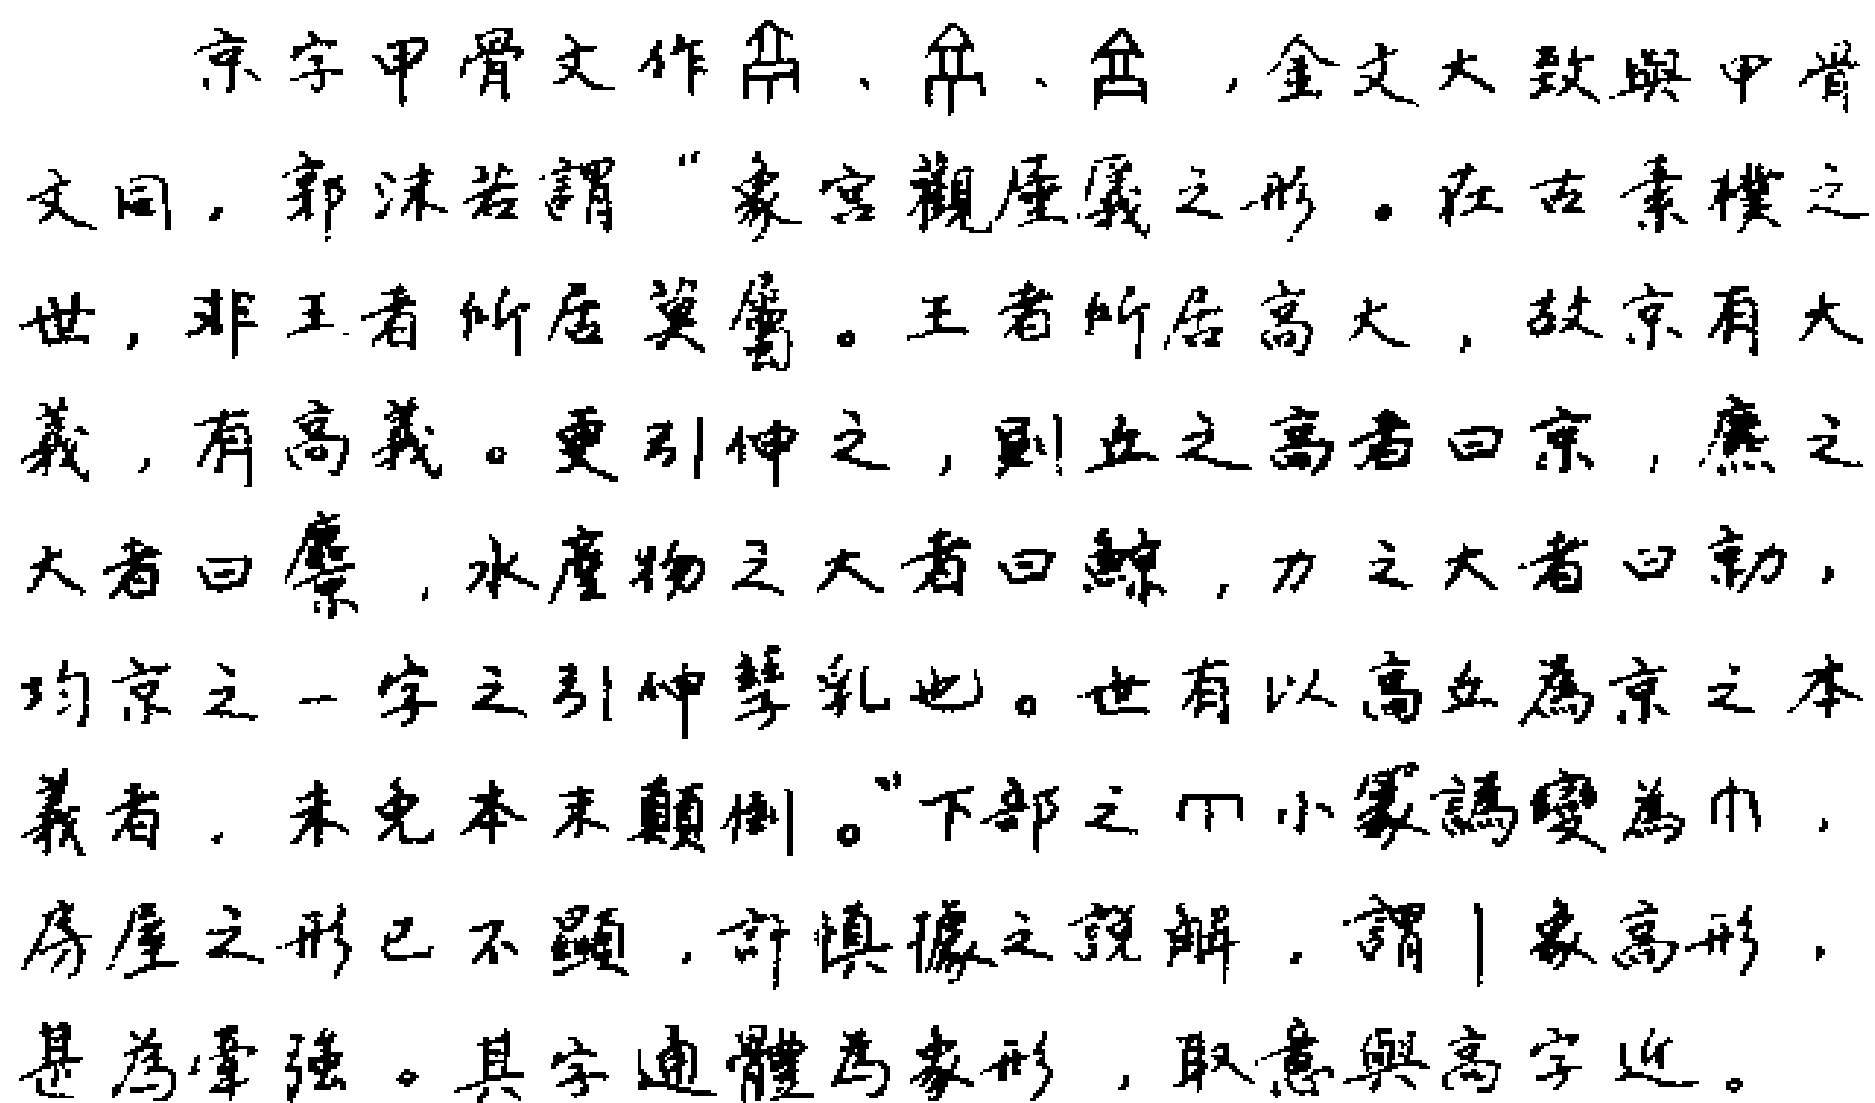 京字甲骨文作、、，金文大致與甲骨
文同，郭沫若謂“象宮觀厜㕒之形。在古素樸之
世，非王者所居莫屬。王者所居高大，故京有大
義，有高義。更引伸之，則丘之高者曰京，麃之
大者曰麖，水產物之大者曰鯨，力之大者曰勍，
均京之一字之引伸孳乳也。世有以高丘為京之本
義者，未免本末顛倒。”下部之小篆譌變為，
房屋之形已不顯，許慎據之說解，謂丨象高形，
是為牽強。其字通體為象形，取意與高字近。